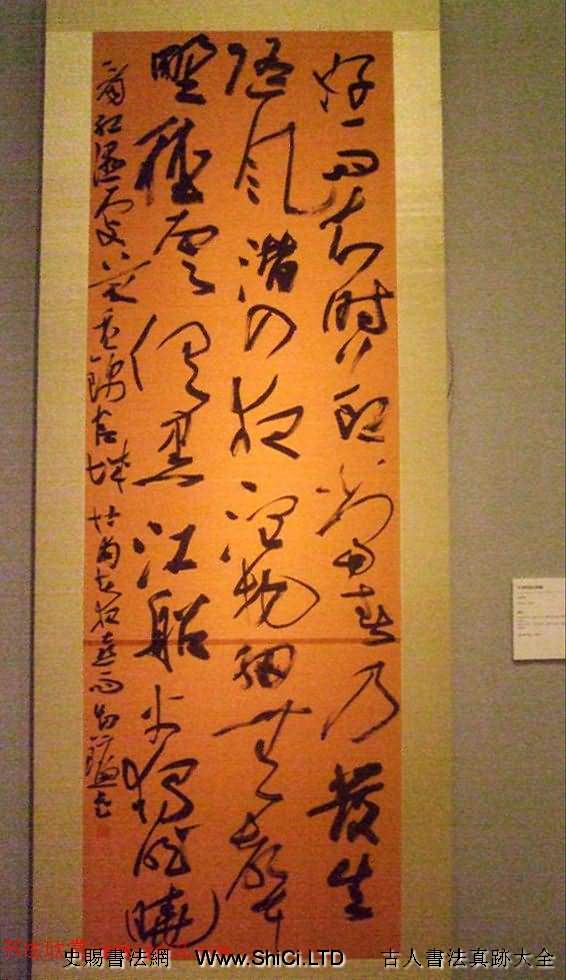 好雨知時節當春乃發生
隨風潛入夜潤物細無聲
野徑雲俱黑江船火獨明曉
看紅濕處花重錦官城 杜甫春夜喜雨
史賜書法網 Www.ShiCi.LTD 古人書法真跡大全